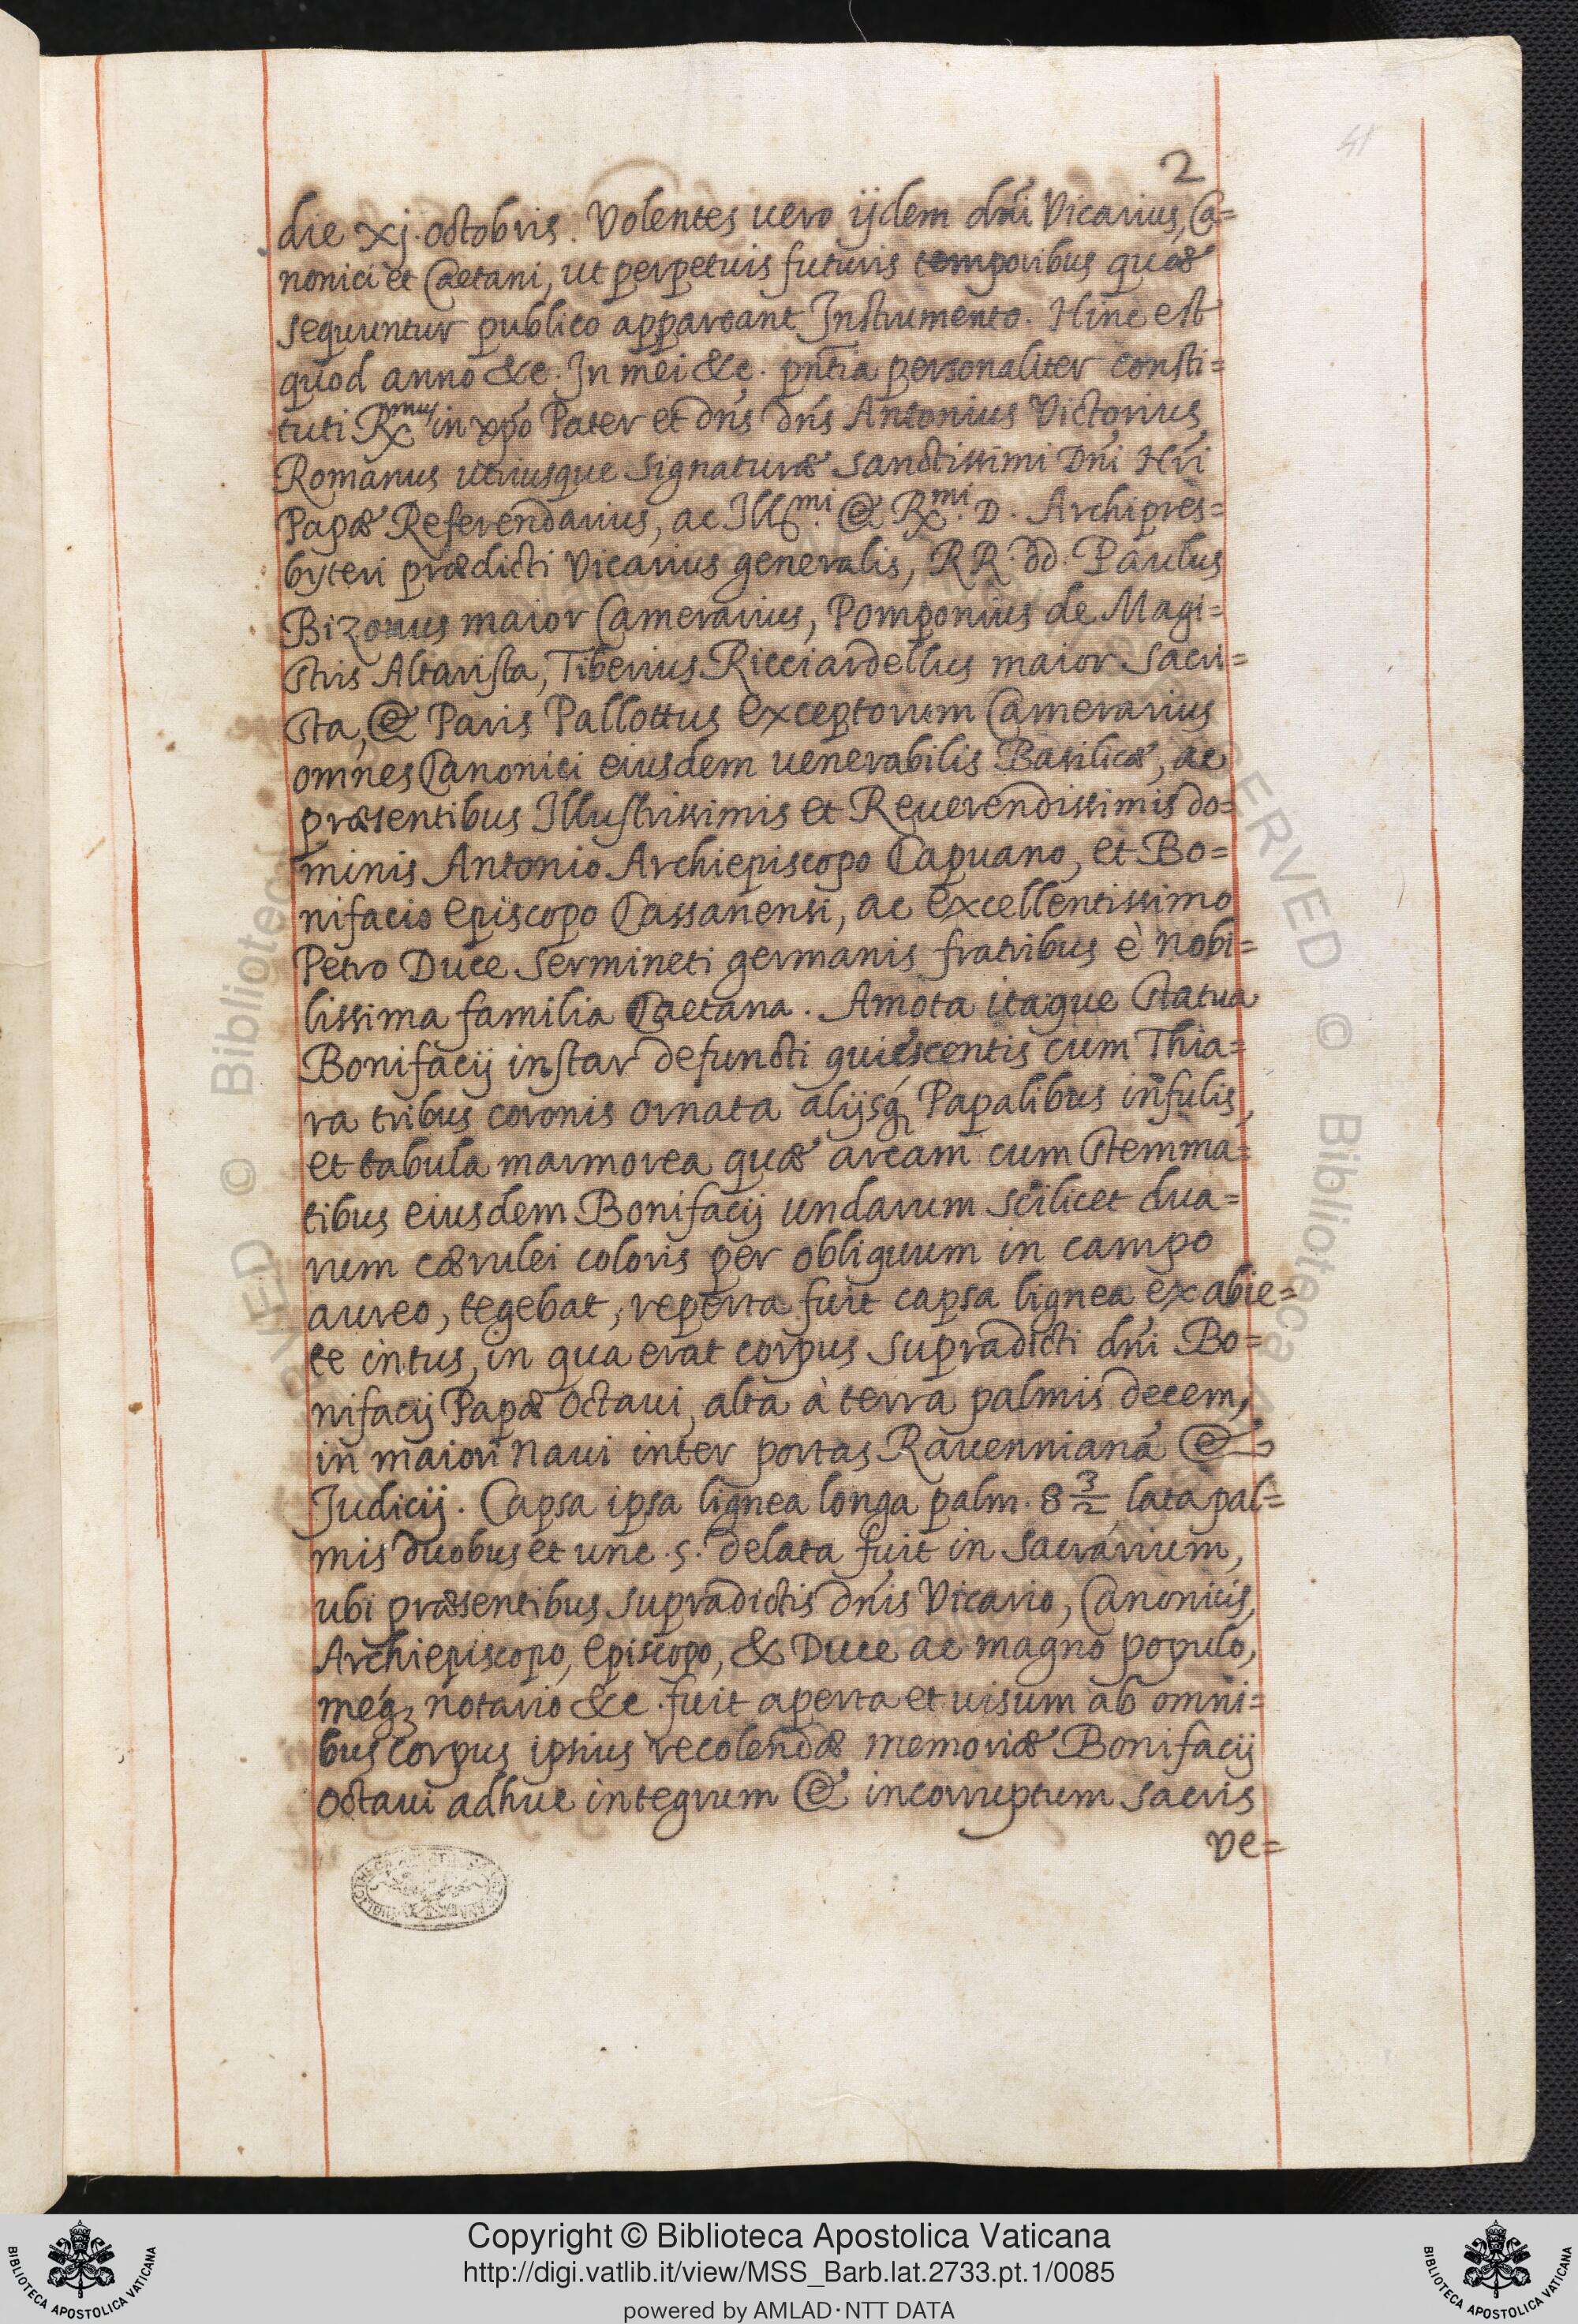 41
2
die xj. octobris. Volentes uero ijdem dñi Vicarius, Ca=
nonici et Caetani, ut perpetuis futuris temporibus quæ
sequuntur publico appareant Instrumento. Hinc est
quod anno &c. In mei &c. pñtia personaliter consti=
tuti Rmus in xpo Pater et dñs dñs Antonius Victorius
Romanus utriusque signaturæ sanctissimi Dñi Nri
Papæ Referendarius, ac Illmi. & Rmi. D. Archipres=
byteri prædicti Vicarius generalis, RR. dd. Paulus
Bizonus maior Camerarius, Pomponius de Magi=
stris Altarista, Tiberius Ricciardellus maior sacri=
sta, & Paris Pallottus exceptorum Camerarius
omnes Canonici eiusdem uenerabilis Basilicæ, ac
præsentibus Illustrissimis et Reuerendissimis do=
minis Antonio Archiepiscopo Capuano, et Bo=
nifacio episcopo Cassanensi, ac excellentissimo
Petro Duce Sermineti germanis fratribus è nobi=
lissima familia Caetana. Amota itaque statua
Bonifacij instar defuncti quiescentis cum Thia=
ra tribus coronis ornata alijsq́ Papalibus infulis,
et tabula marmorea quæ arcam cum stemma=
tibus eiusdem Bonifacij undarum scilicet dua=
rum cærulei coloris per obliquum in campo
aureo, tegebat, reperta fuit capsa lignea ex abie=
te intus, in qua erat corpus supradicti dñi Bo=
nifacij Papæ octaui, alta à terra palmis decem,
in maiori naui inter portas Rauennianã &
Judicij. Capsa ipsa lignea longa palm. 8 3/2 lata pal=
mis duobus et unc. 5. delata fuit in Sacrarium,
ubi præsentibus supradictis dñis Vicario, Canonicis,
Archiepiscopo, episcopo, & Duce ac magno populo,
meq́ꝫ notario &c. fuit aperta et uisum ab omni=
bus corpus ipsius recolendæ memoriæ Bonifacij
octaui adhuc integrum & incorruptum sacris
ve=
Copyright © Biblioteca Apostolica Vaticana
http://digi.vatlib.it/view/MSS_Barb.lat.2733.pt.1/0085
powered by AMLAD·NTT DATA
BIBLIOTECA APOSTOLICA VATICANA
BIBLIOTECA APOSTOLICA VATICANA